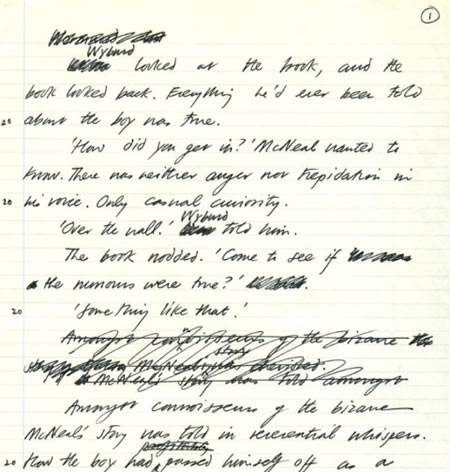 1
Wyburd
looked at the book, and the
book looked back. Everything he'd ever been told
20 about the boy was true.
'How did you get in?' McNeal wanted to
know. There was neither anger nor trepidation in
20 his voice. Only casual curiosity.
'Over the wall.' Wyburd told him.
The book nodded. 'Come to see if
the rumours were true?'
20 'Something like that.'
Amongst connoisseurs of the bizarre
story
McNeal's story was told amongst
Amongst connoisseurs of the bizarre
McNeal's story was told in reverential whispers.
20 How the boy had passed himself off as a